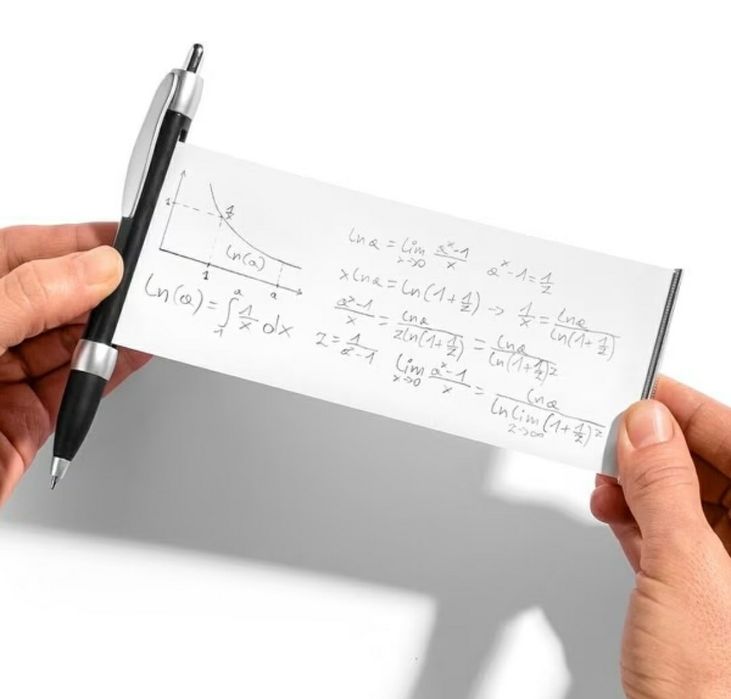 1
1/x
ln(a)
1 a
ln(a) = ∫₁ᵃ 1/x dx
ln a = lim x→0 (aˣ-1)/x   aˣ-1 = 1/z
x ln a = ln(1+1/z) → 1/x = ln a / ln(1+1/z)
(aˣ-1)/x = ln a / z ln(1+1/z) = ln a / ln(1+1/z)ᶻ
z = 1/(aˣ-1)   lim x→0 (aˣ-1)/x = ln a / ln lim z→∞ (1+1/z)ᶻ